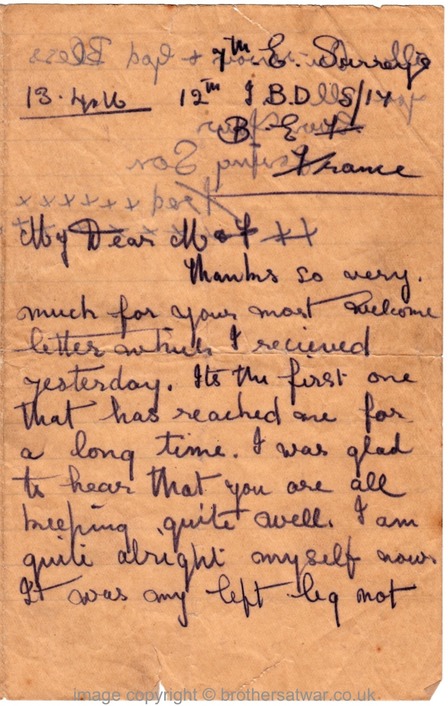 7th E. Surreys
13.4.16 12th I.B.D S/17
B E F
France
My Dear M & F
Thanks so very
much for your most welcome
letter which I recieved
yesterday. Its the first one
that has reached me for
a long time. I was glad
to hear that you are all
keeping quite well. I am
quite alright myself now
It was my left leg not
image copyright © brothersatwar.co.uk